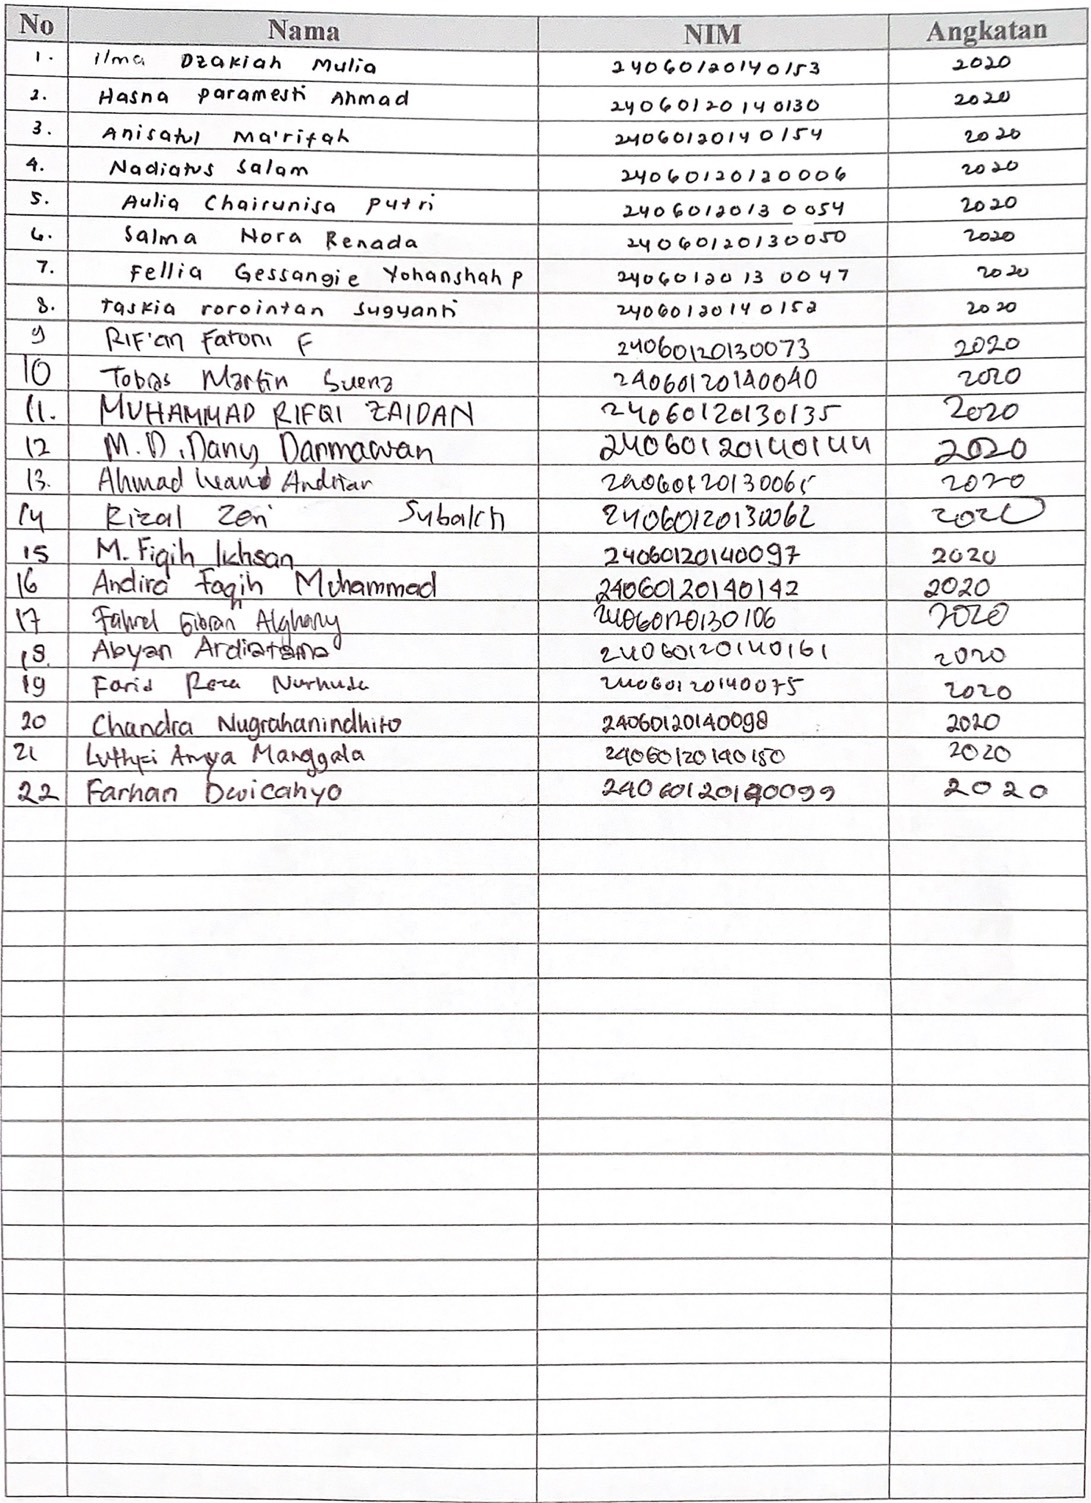 No Nama NIM Angkatan
1. Ilma Dzakiah Mulia 24060120140153 2020
2. Hasna Paramesti Ahmad 24060120140130 2020
3. Anisatul Ma'rifah 24060120140154 2020
4. Nadiatus Salam 24060120120006 2020
5. Aulia Chairunisa Putri 24060120130054 2020
6. Salma Nora Renada 24060120130050 2020
7. Fellia Gessangie Yohanshah P 24060120130047 2020
8. Taskia rorointan Sugyanti 24060120140152 2020
9 RIF'an Fatoni F 24060120130073 2020
10 Tobias Martin 24060120140040 2020
11. MUHAMMAD RIFQI ZAIDAN 24060120130135 2020
12 M.D. Dany Darmawan 24060120140144 2020
13. Ahmad 2406012013006 2020
14 Rizal Zeri 24060120130062 2020
15 M. Fiqih Ikhsan 24060120140097 2020
16 Andira Faqih Muhammad 24060120140142 2020
17 Fahrel Gibran Alghany 24060120130106 2020
18. Abyan Ardiatama 24060120140161 2020
19 Farid Reza Nurhuda 24060120140075 2020
20 Chandra Nugrahanindhito 24060120140098 2020
21 Luthfi Arya Manggala 24060120140150 2020
22 Farhan Dwicahyo 24060120140099 2020